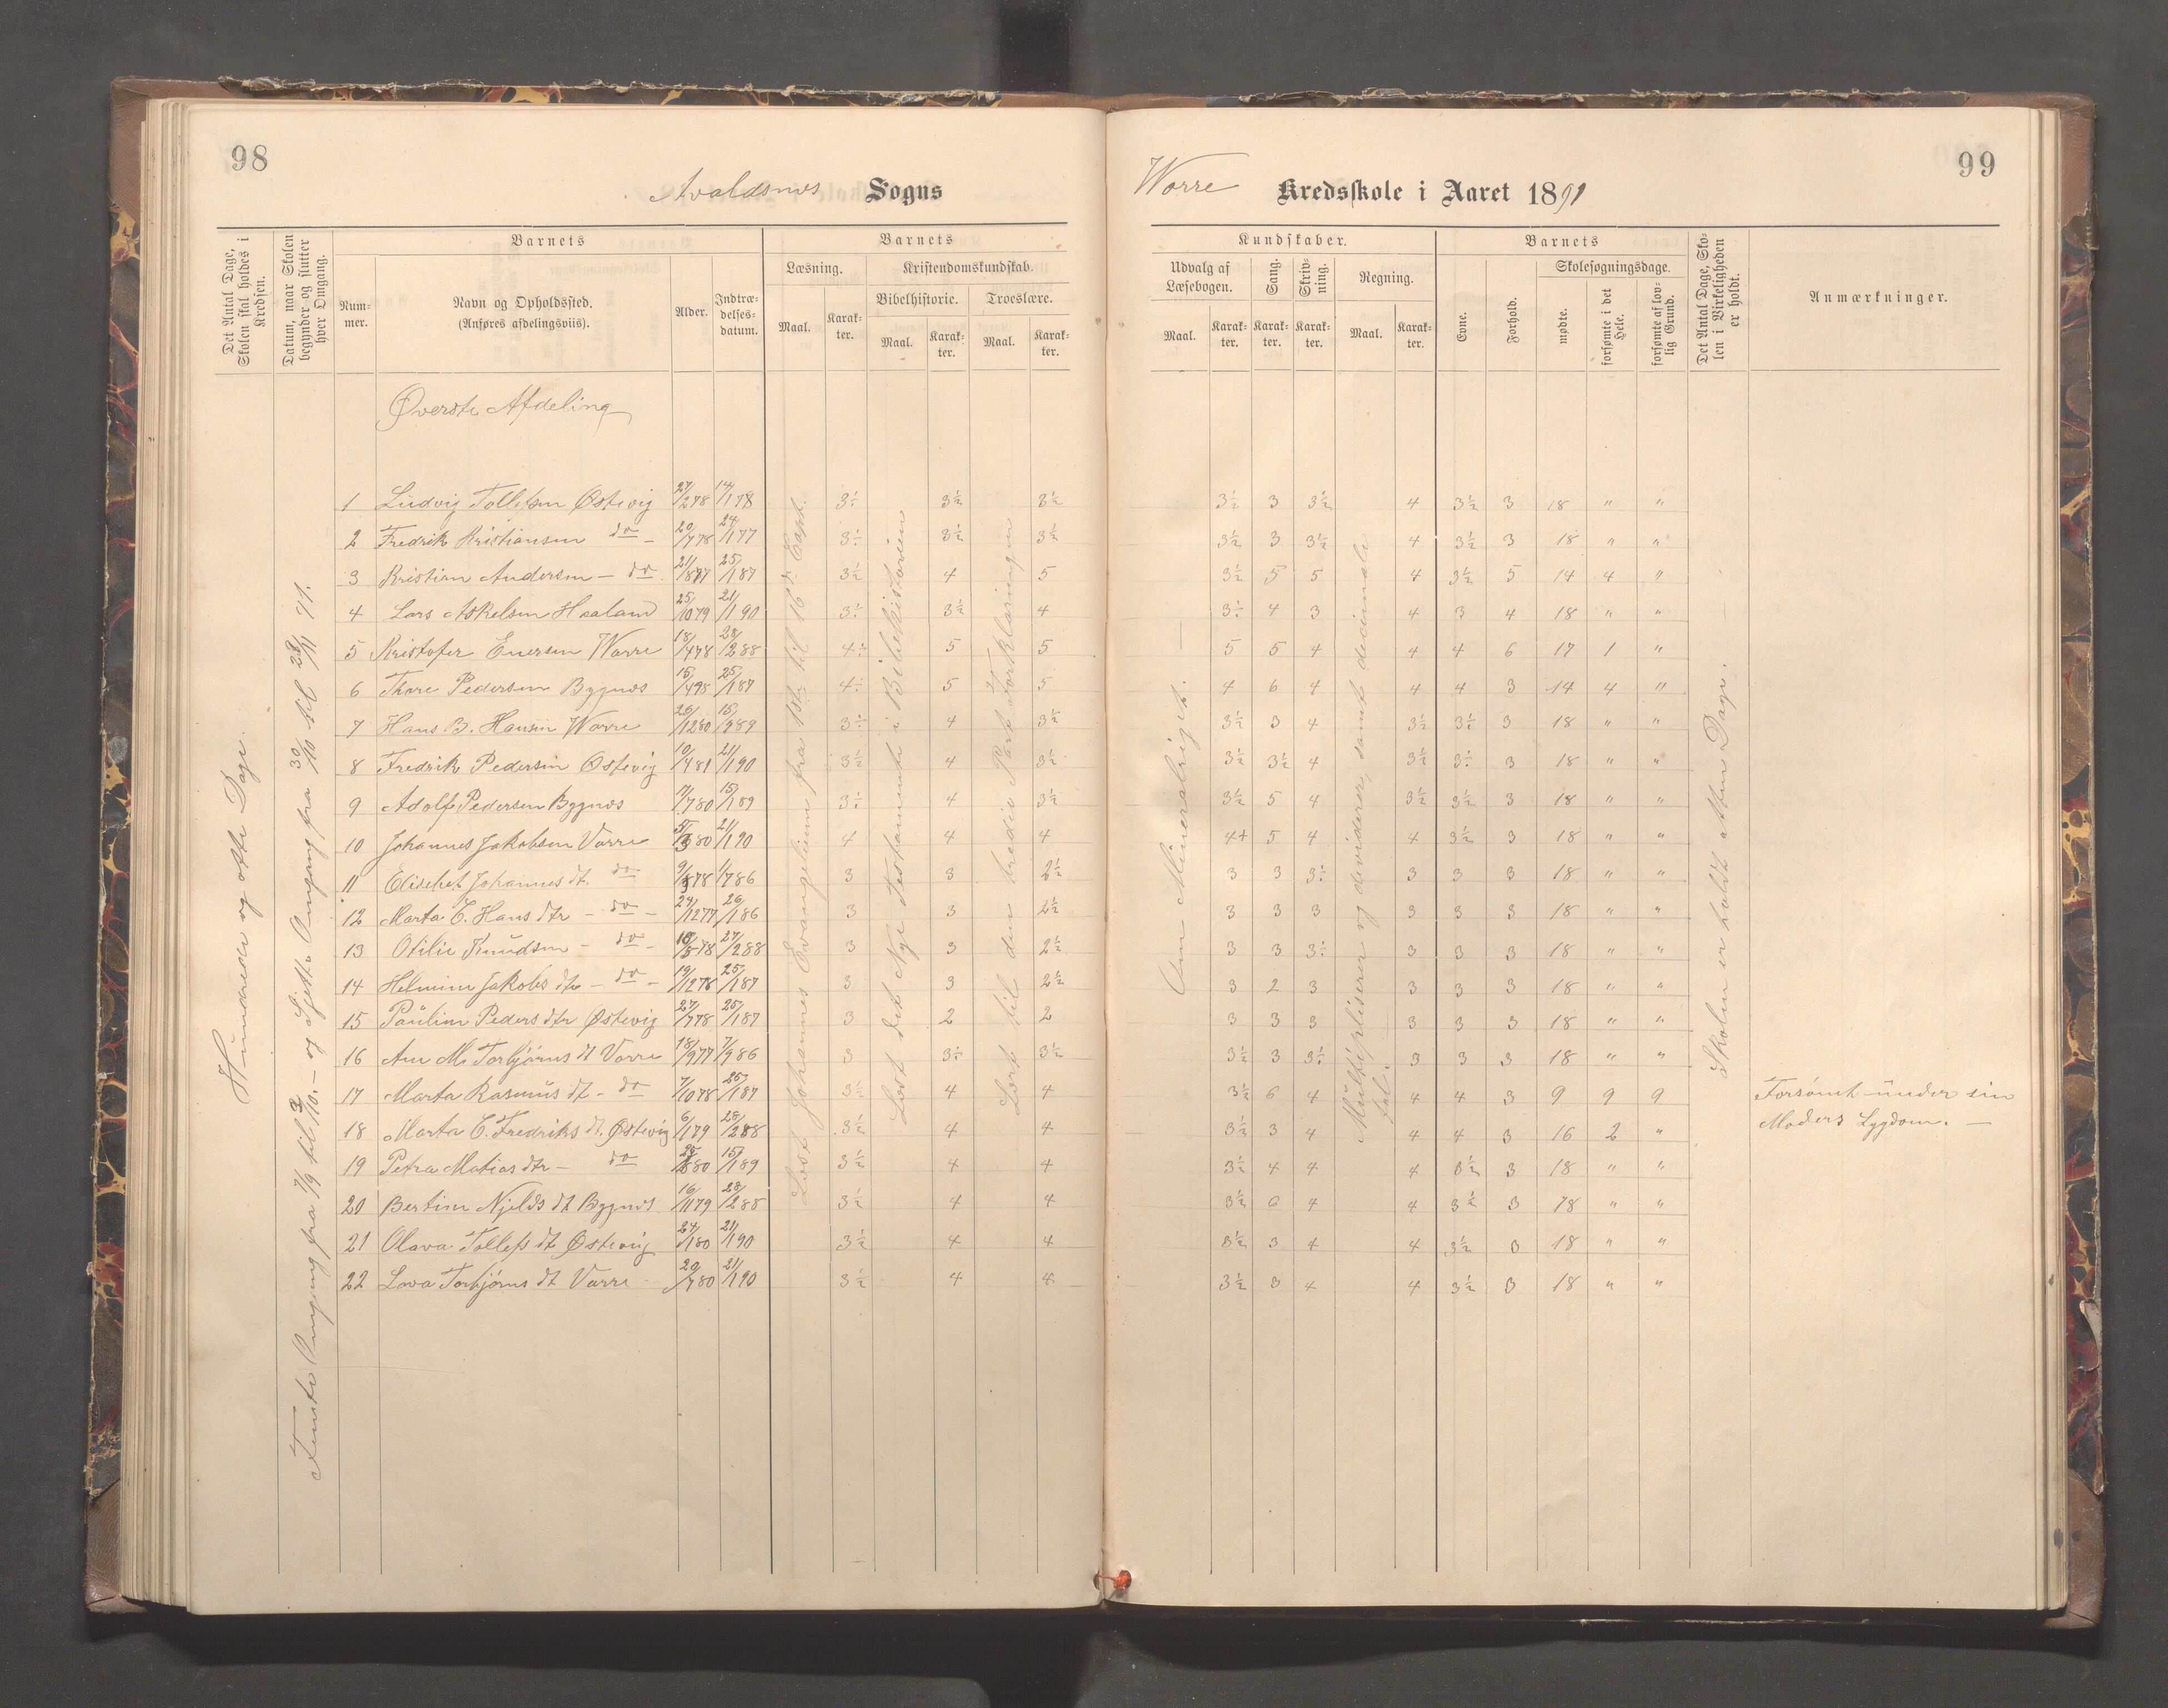 98
Avaldsnes Sogns
Det Antal Dage, Skolen skal holdes i Kredsen.
Datum, naar Skolen begynder og slutter hver Omgang.
Barnets
Nummer.
Navn og Opholdssted.
(Anføres afdelingsviis).
Alder.
Indtrædelsesdatum.
Barnets
Læsning.
Maal.
Karakter.
Kristendomskundskab.
Bibelhistorie.
Maal.
Karakter.
Troeslære.
Maal.
Karakter.
Hundrede og otte Dage.
Øverste Afdeling
1 Ludvig Tollefsen Østevig 27/2 78 3÷ 3½ 3½
2 Fredrik Kristiansen do 20/7 78 24/1 77 3÷ 3½ 3½
3 Kristian Andersen - do 21/8 77 25/1 87 3½ 4 5
4 Lars Askelsen Haaland 25/10 79 21/1 90 3÷ 3½ 4
5 Kristofer Enersen Warre 18/4 78 28/2 88 4÷ 5 5
6 Thore Pedersen Bygnes 25/1 87 4÷ 5 5
7 Hans B. Hansen Worre 26/12 80 3÷ 4 3½
8 Fredrik Pedersen Østevig 10/4 81 21/1 90 3½ 4 3½
9 Adolf Pedersen Bygnes 7/7 80 15/1 89 3÷ 4 3½
10 Johannes Jakobsen Varre 21/1 90 4 4 4
11 Elisebet Johannes dt. do 1/7 86 3 3 2½
12 Marta C. Hans dtr - do - 24/12 77 26/1 86 3 3 2½
13 Otilie Knudsen - do - 27/2 88 3 3 2½
14 Helmine Jakobs dtr - do - 19/12 78 25/1 87 3 3 2½
15 Pauline Peders dtr Østevig 27/7 78 25/1 87 3 2 2
16 Ane M. Torbjørns dt Varre 18/9 77 7/9 86 3 3÷ 3½
17 Marta Rasmus dt - do 7/10 78 25/1 87 3½ 4 4
18 Marta C. Fredriks dt. Østevig 6/1 79 28/2 88 3½ 4 4
19 Petra Matias dtr - do 15/1 89 3½ 4 4
20 Bertine Njelds dt Bygnes 16/11 79 28/2 88 3½ 4 4
21 Olava Tollefs dt Østevig 24/1 80 21/1 90 3½ 4 4
22 Lava Torbjørns dt Varre 20/7 80 21/1 90 3½ 4 4
Femte Omgang fra 7/9 til 3/10. - og Sjette Omgang fra 30/10 til 23/11 91.
Læst Johannes Evangelium fra 1ste til 16de Capt.
Læst det Nye Testamente i Bibelhistorien
Lært til den tredie Part Forklaringen
99
Worre Kredsskole i Aaret 1891
Kundskaber.
Udvalg af Læsebogen.
Maal.
Karakter.
Sang.
Karakter.
Skrivning.
Karakter.
Regning.
Maal.
Karakter.
Barnets
Evne.
Forhold.
Skolesøgningsdage.
mødte.
forsømte i det Hele.
forsømte af lovlig Grund.
Det Antal Dage, Skolen i Virkeligheden er holdt.
Anmærkninger.
3½ 3 3½ 4 3½ 3 18 " "
3½ 3 3½ 4 3½ 3 18 " "
3½ 5 5 4 3½ 5 14 4 "
3÷ 4 3 4 3 4 18 " "
5 5 4 4 4 6 17 1 "
4 6 4 4 4 3 14 4 "
3½ 3 4 3½ 3½ 3 18 " "
3½ 3½ 4 3½ 3÷ 3 18 " "
3½ 5 4 3½ 3½ 3 18 " "
4+ 5 4 4 3½ 3 18 " "
3 3 3÷ 3 3 3 18 " "
3 3 3 3 3 3 18 " "
3 3 3÷ 3 3 3 18 " "
3 2 3 3 3 3 18 " "
3 3 3 3 3 3 18 " "
3½ 3 3÷ 3 3 3 18 " "
3½ 6 4 4 4 3 9 9 9 Forsømt under sin
3½ 3 4 4 4 3 16 2 " Moders Sygdom. —
3½ 4 4 4 3½ 3 18 " "
3½ 6 4 4 3½ 3 18 " "
3½ 3 4 4 3½ 3 18 " "
3½ 3 4 4 3½ 3 18 " "
Om Mineralriget. —
Multipliserer og dividerer, samt decimale tal.
Skolen er holdt atten Dage. —